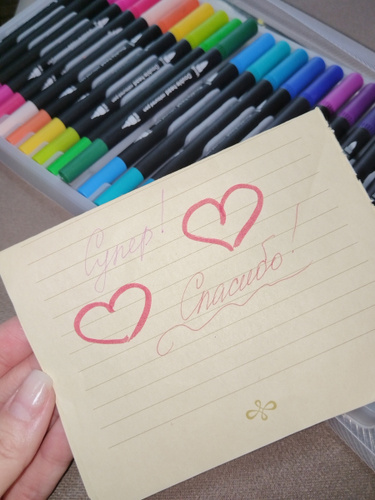 Супер!
Спасибо!